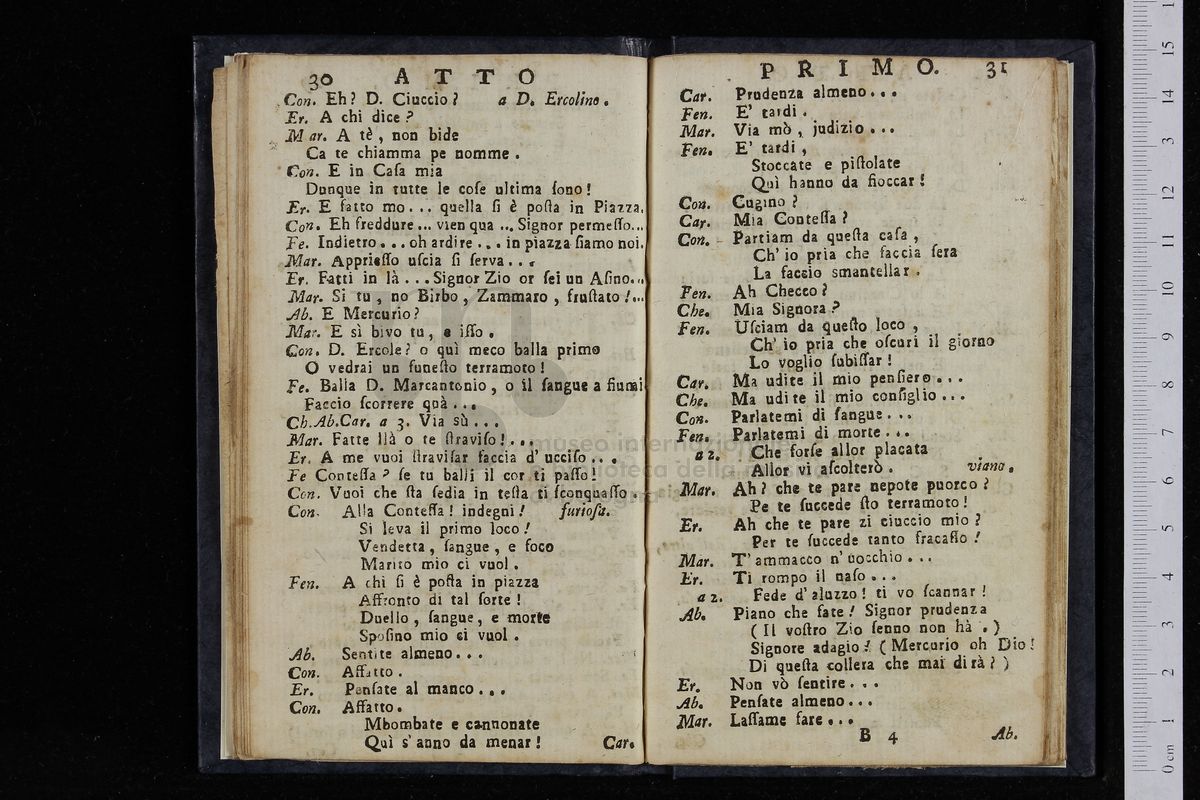 30 A T T O
Con. Eh? D. Ciuccio? a D. Ercolino.
Er. A chi dice?
Mar. A tè, non bide
Ca te chiamma pe nomme.
Con. E in Caſa mia
Dunque in tutte le coſe ultima ſono!
Er. E fatto mo... quella ſi è poſta in Piazza.
Con. Eh freddure... vien qua... Signor permeſſo...
Fe. Indietro... oh ardire... in piazza ſiamo noi.
Mar. Apprieſſo uſcia ſi ſerva...
Er. Fatti in là... Signor Zio or ſei un Aſino...
Mar. Si tu, no Birbo, Zammaro, fruſtato!...
Ab. E Mercurio?
Mar. E sì bivo tu, e iſſo.
Con. D. Ercole? o quì meco balla primo
O vedrai un funeſto terramoto!
Fe. Balla D. Marcantonio, o il ſangue a fiumi
Faccio ſcorrere quà...
Ch.Ab.Car. a 3. Via sù...
Mar. Fatte llà o te ſtraviſo!...
Er. A me vuoi ſtraviſar faccia d' ucciſo...
Fe Conteſſa? ſe tu balli il cor ti paſſo!
Con. Vuoi che ſta ſedia in teſta ti ſconquaſſo.
Con. Alla Conteſſa! indegni! furioſa.
Si leva il primo loco!
Vendetta, ſangue, e foco
Marito mio ci vuol.
Fen. A chi ſi è poſta in piazza
Affronto di tal ſorte!
Duello, ſangue, e morte
Spoſino mio ci vuol.
Ab. Sentite almeno...
Con. Affatto.
Er. Penſate al manco...
Con. Affatto.
Mbombate e cannonate
Quì s' anno da menar! Car.
P R I M O. 31
Car. Prudenza almeno...
Fen. E' tardi.
Mar. Via mò, judizio...
Fen. E' tardi,
Stoccate e piſtolate
Quì hanno da fioccar!
Con. Cugino?
Car. Mia Conteſſa?
Con. Partiam da queſta caſa,
Ch' io pria che faccia ſera
La faccio smantellar.
Fen. Ah Checco?
Che. Mia Signora?
Fen. Uſciam da queſto loco,
Ch' io pria che oſcuri il giorno
Lo voglio ſubiſſar!
Car. Ma udite il mio penſiero...
Che. Ma udite il mio conſiglio...
Con. Parlatemi di ſangue...
Fen. Parlatemi di morte...
a 2. Che forſe allor placata
Allor vi aſcolterò. viano.
Mar. Ah? che te pare nepote puorco?
Pe te ſuccede ſto terramoto!
Er. Ah che te pare zi ciuccio mio?
Per te ſuccede tanto fracaſſo!
Mar. T' ammacco n' uocchio...
Er. Ti rompo il naſo...
a 2. Fede d' aluzzo! ti vo ſcannar!
Ab. Piano che fate! Signor prudenza
(Il voſtro Zio ſenno non hà.)
Signore adagio! (Mercurio oh Dio!
Di queſta collera che mai dirà?)
Er. Non vò ſentire...
Ab. Penſate almeno...
Mar. Laſſame fare...
B 4 Ab.
museo internazionale
biblioteca della